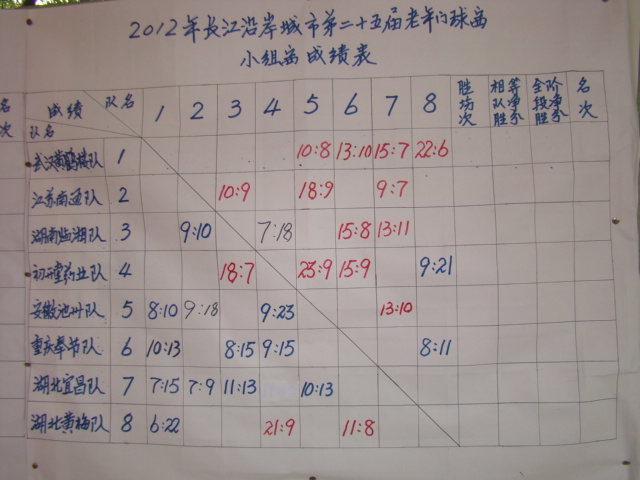 2012年长江沿岸城市第二十五届老年门球赛
小组赛成绩表
名次 成绩 队名 1 2 3 4 5 6 7 8 胜场次 相等队净胜分 全阶段净胜分 名次
队名
武汉黄鹤楼队 1 10:8 13:10 15:7 22:6
江苏南通队 2 10:9 18:9 9:7
湖南临湘队 3 9:10 7:18 15:8 13:11
药业队 4 18:7 23:9 15:9 9:21
安徽池州队 5 8:10 9:18 9:23 13:10
重庆奉节队 6 10:13 8:15 9:15 8:11
湖北宜昌队 7 7:15 7:9 11:13 10:13
湖北黄梅队 8 6:22 21:9 11:8